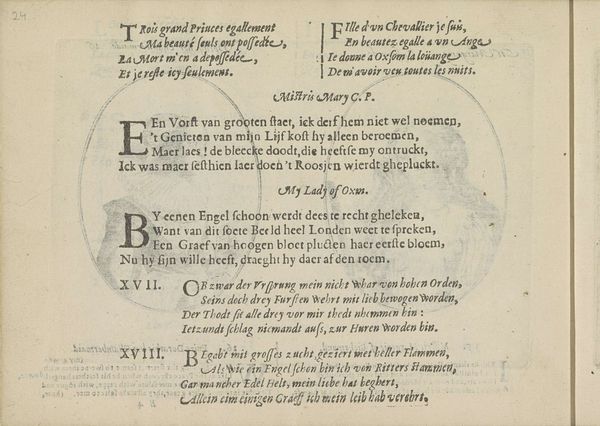 24
TRois grand Princes egallement
Ma beauté seuls ont possedte,
La Mort m'en a depossedée,
Et je reste icy seulement.
FIlle d'vn Chevallier je suis,
En beautez egalle a vn Ange
Ie donne a Oxsom la loüange
De m'avoir veu toutes les nuits.
Mistris Mary C. P.
EEn Vorst van grooten staet, ick derf hem niet wel noemen,
't Genieten van mijn Lijf kost hy alleen beroemen,
Maer laes! de bleecke doodt, die heeftse my ontruckt,
Ick was maer sesthien Iaer doen 't Roosjen wierdt ghepluckt.
My Lady of Oxm.
BY eenen Engel schoon werdt dees te recht gheleken,
Want van dit soete Beeld heel Londen weet te spreken,
Een Graef van hoogen bloet pluckten haer eerste bloem,
Nu hy sijn wille heeft, draeght hy daer af den roem.
XVII. OB zwar der Vrsprung mein nicht whar von hohen Orden,
Seins doch drey Fursten Wehrt mit lieb bewogen worden,
Der Thodt sie alle drey vor mir thedt nhemmen hin:
Ietzundt schlag niemandt auss, zur Huren worden bin.
XVIII. BEgabt mit grosses zucht geziert met heller Flammen,
Als wie ein Engel schon bin ich von Ritters stammen,
Gar mancher Edel Helt, mein liebe has beghert,
Allein eim einigen Graeff ich mein leib hab verehrt.